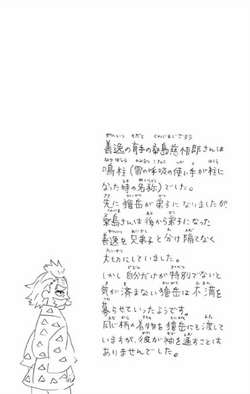 善逸の育手の桑島慈悟郎さんは
鳴柱(雷の呼吸の使い手が柱に
なった時の名称)でした。
先に獪岳が弟子になりましたが
桑島さんは後から弟子になった
善逸を兄弟子と分け隔てなく
大切にしていました。
しかし自分だけが特別でないと
気が済まない獪岳は不満を
募らせていったようです。
同じ柄の着物を獪岳にも渡して
いますが、彼が袖を通すことは
ありませんでした。